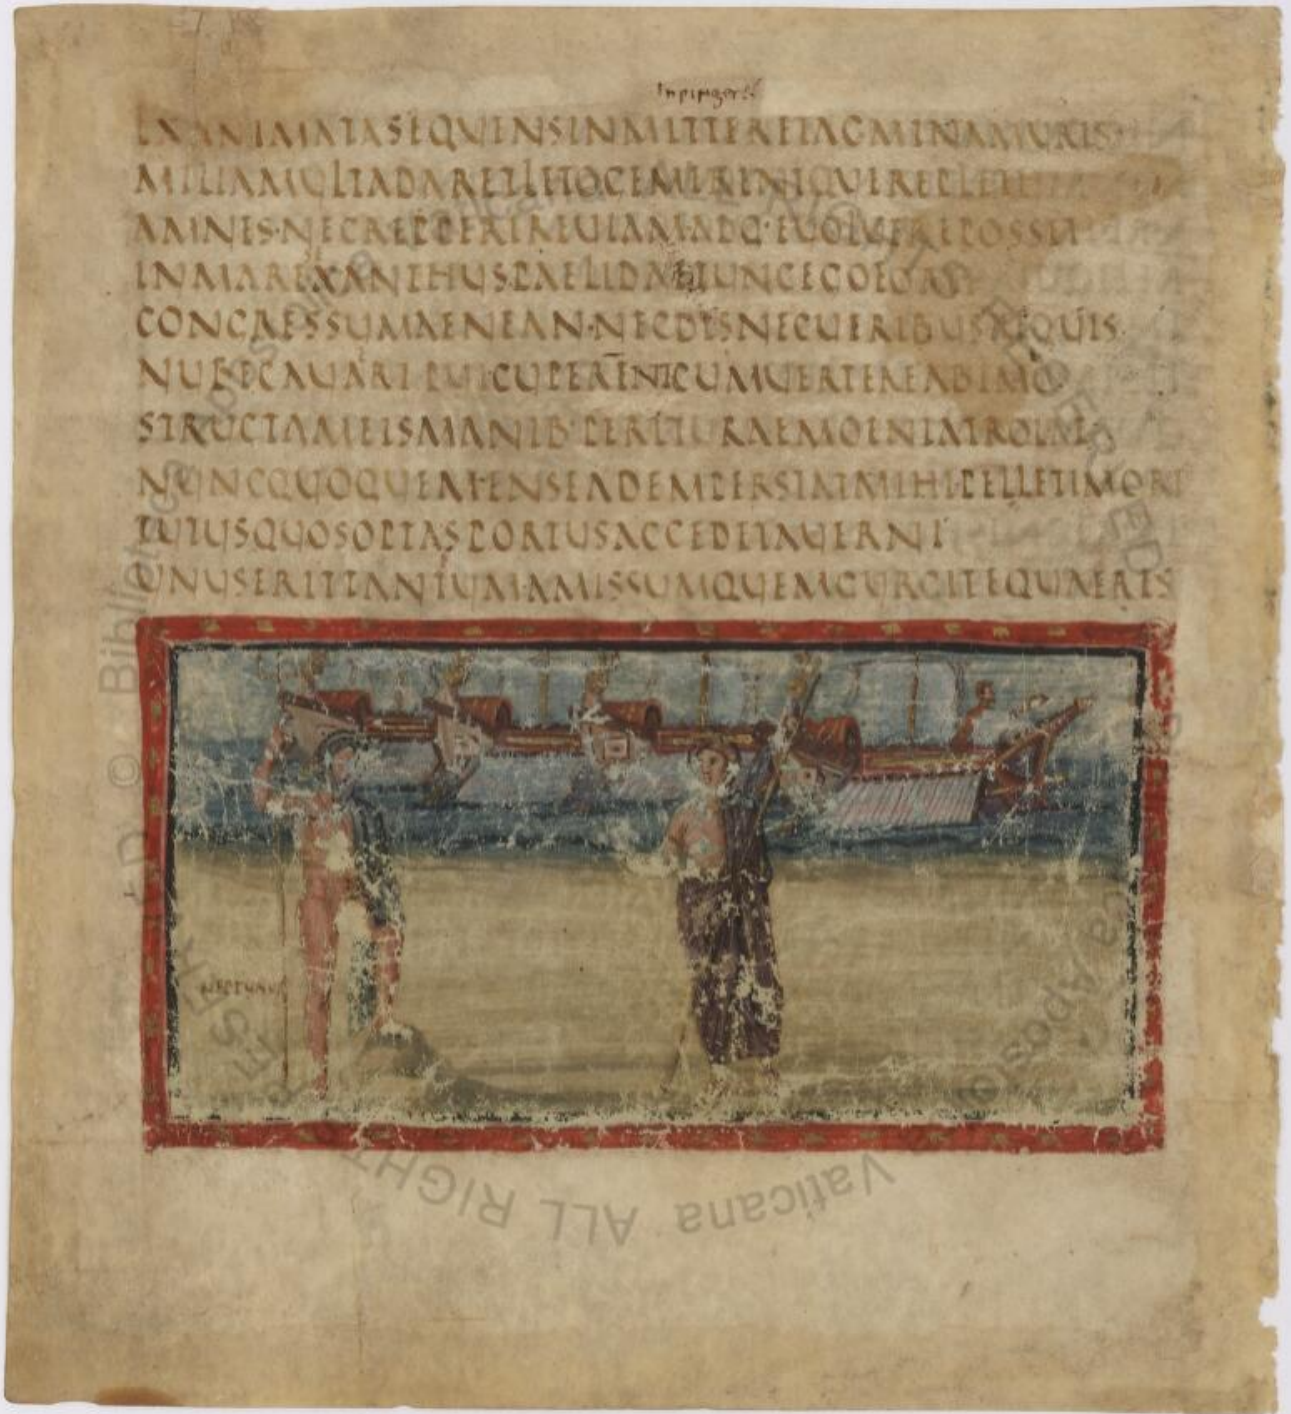 inpingeret
EXANIMATASEQUENSINMITTERETAGMINAMURIS
MILIAMULTADARETLETOGEMERENTQUEREPLETI
AMNES·NECREPPERIREUIAMADQ·EUOLUEREPOSSET
INMAREXANTHUSPAELIDAETUNCEGOFORT
CONGRESSUMAENEAN·NECDISNECUERIBUSAEQUIS
NUBECAUARIPUICUPEREMCUMUERTEREABIMO
STRUCTAMEISMANIB·PERITURAEMOENIATROIAE
NUNCQUOQUEMENSEADEMPERSTATMIHIPELLETIMORE
TUTUSQUOSOPTASPORTUSACCEDETAUERNI
UNUSERITTANTUM·AMISSUMQUEMGURGITEQUAERES
NEPTUNUS
Vaticana ALL RIGHTS RESERVED © Biblioteca Apostolica Vaticana ALL RIGHTS RESERVED © Biblioteca Apostolica